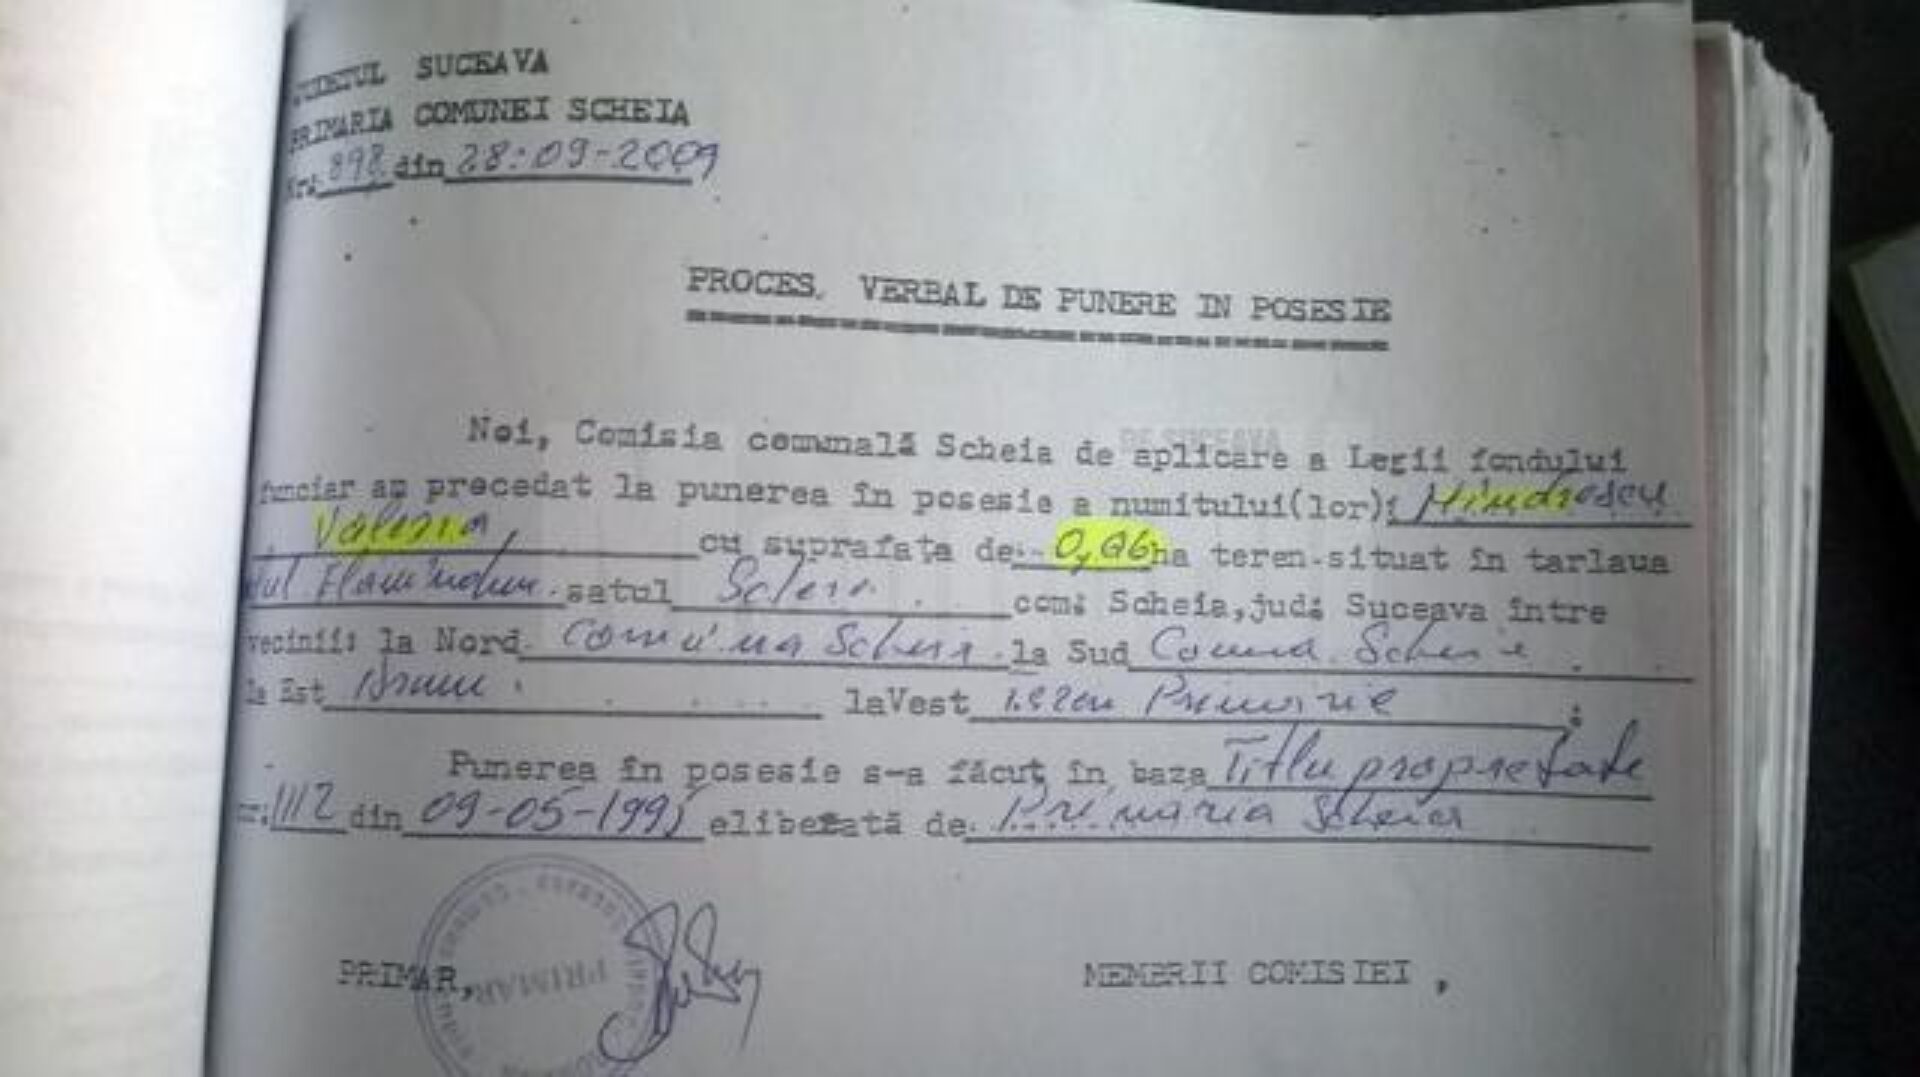 SUCEAVA
PRIMARIA COMUNEI SCHEIA
Nr. 898 din 28.09-2009
PROCES, VERBAL DE PUNERE IN POSESIE
Noi, Comisia comunală Scheia de aplicare a Legii fondului
funciar am precedat la punerea în posesie a numitului(lor):
Valeria cu suprafața de ha teren situat în tarlaua
satul Scheia com: Scheia, jud: Suceava între
vecinii: la Nord Comuna Scheia la Sud Comuna Scheia
la Est Drum laVest teren Primarie
Punerea în posesie s-a făcut în baza Titlu proprietate
1112 din 09-05-1995 eliberată de Primaria Scheia
PRIMAR, MEMBRII COMISIEI,
PRIMAR